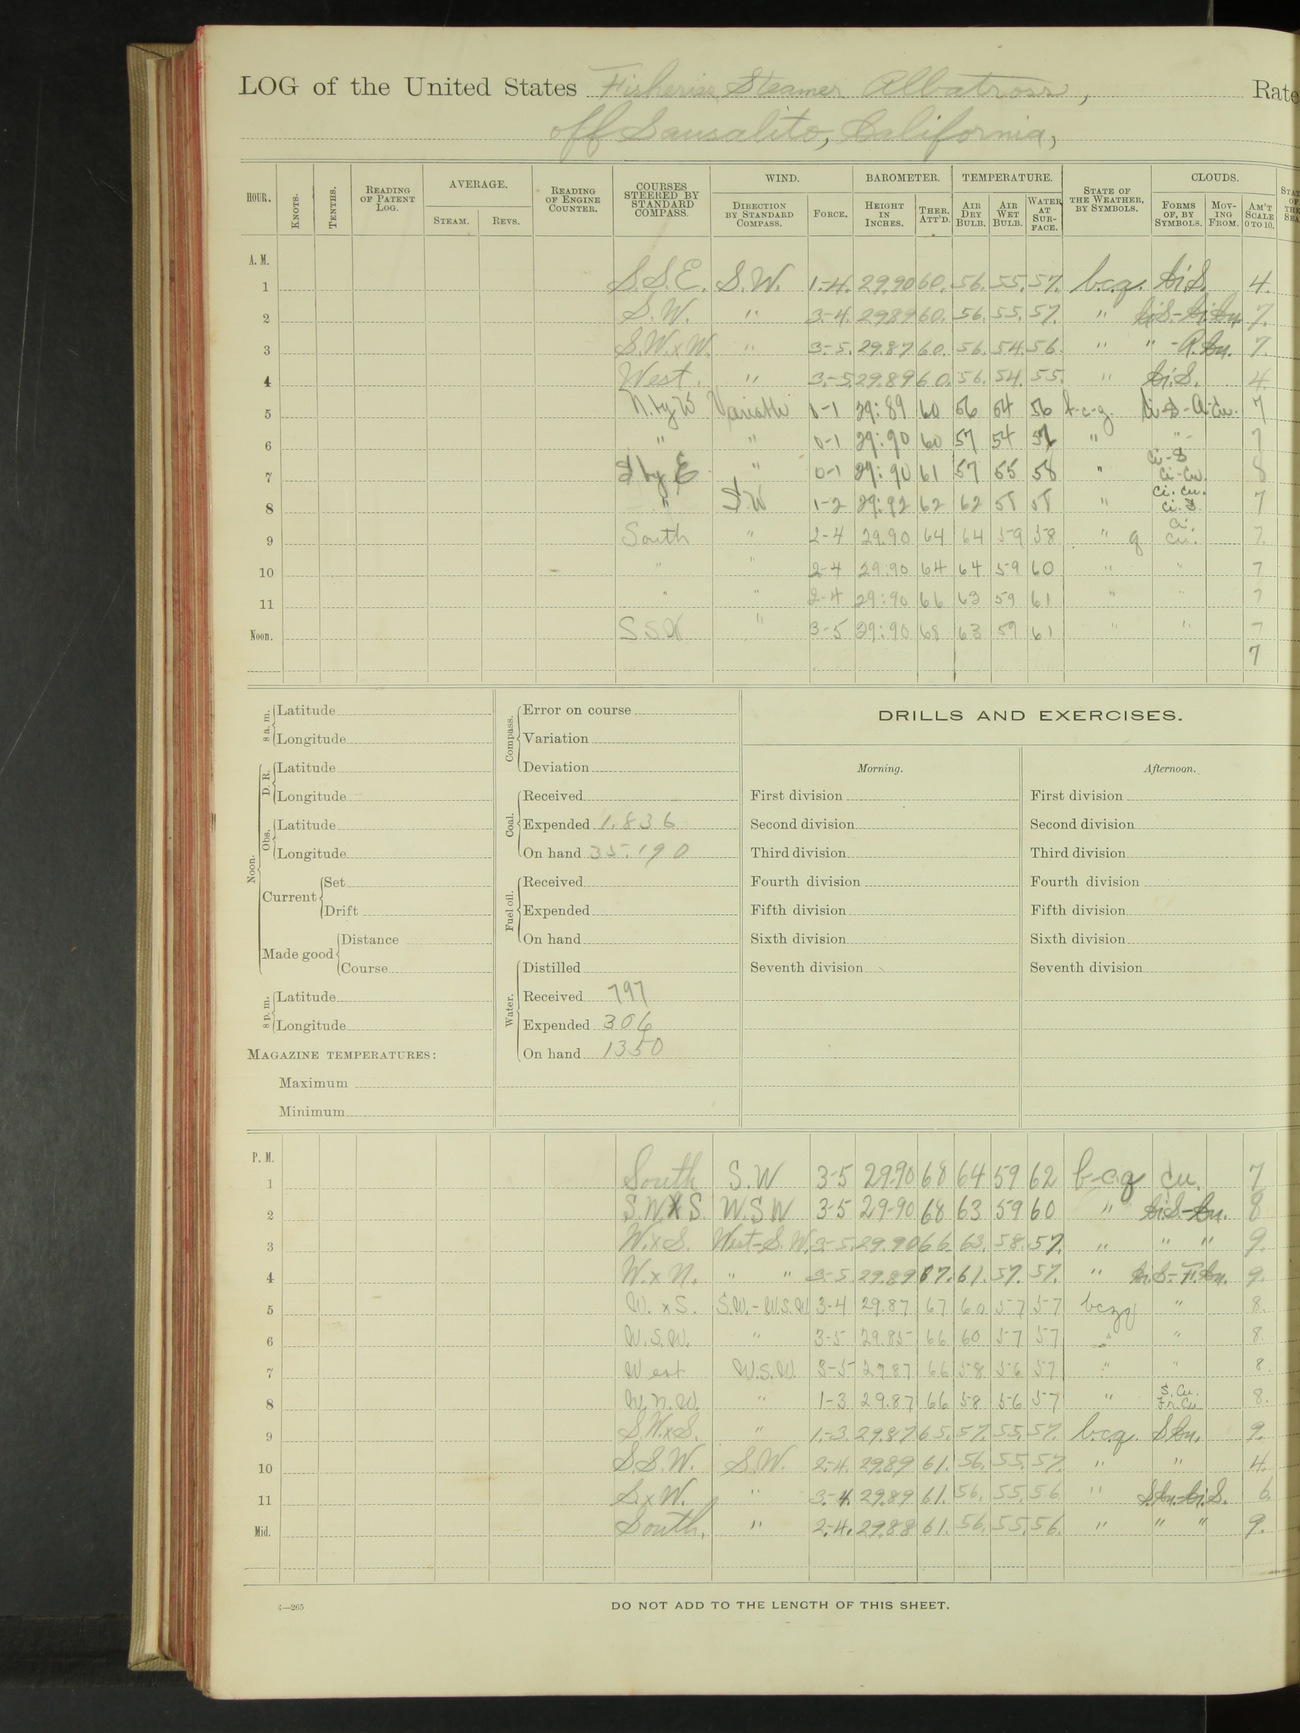 LOG of the United States Fisheries Steamer Albatross, Rate
off Sausalito, California,
HOUR. KNOTS. TENTHS. READING OF PATENT LOG. AVERAGE. STEAM. REVS. READING OF ENGINE COUNTER. COURSES STEERED BY STANDARD COMPASS. WIND. DIRECTION BY STANDARD COMPASS. FORCE. BAROMETER. HEIGHT IN INCHES. THER. ATT'D. TEMPERATURE. AIR DRY BULB. AIR WET BULB. WATER AT SURFACE. STATE OF THE WEATHER, BY SYMBOLS. CLOUDS. FORMS OF, BY SYMBOLS. MOVING FROM. AM'T SCALE 0 TO 10.
A. M.
1 S.S.E. S.W. 1-4. 29.90 60. 56. 55. 57. b.c.q. Ci.S. 4.
2 S.W. " 3-4. 29.89 60. 56. 55. 57. " Ci.S-Ci.Cu. 7.
3 S.W.xW. " 3-5. 29.87 60. 56. 54. 56. " " -A.Cu. 7.
4 West. " 3-5. 29.89 60. 56. 54. 55. " Ci.S. 4.
5 N. by W Variable 0-1 29:89 60 56 54 56 b-c-g. Ci-S-A-Cu. 7
6 " " 0-1 29:90 60 57 54 " " 7
7 S by E " 0-1 29:90 61 57 55 58 " Ci-S Ci-Cu. 8
8 " S.W 1-2 29:92 62 62 58 58 " Ci. Cu. Ci. S. 7
9 South " 2-4 29.90 64 64 59 58 " q Ci. Cu. 7.
10 " " 2-4 29:90 64 64 59 60 " " 7
11 " " 2-4 29:90 66 63 59 61 " " 7
Noon. S S W " 3-5 29:90 68 63 59 61 " " 7
7
8 a. m. Latitude
Longitude
Noon. D. R. Latitude
Longitude
Obs. Latitude
Longitude
Current Set
Drift
Made good Distance
Course
8 p. m. Latitude
Longitude
MAGAZINE TEMPERATURES:
Maximum
Minimum
Compass. Error on course
Variation
Deviation
Coal. Received
Expended 1.836
On hand 35.190
Fuel oil. Received
Expended
On hand
Water. Distilled
Received 797
Expended 306
On hand 1350
DRILLS AND EXERCISES.
Morning.
First division
Second division
Third division
Fourth division
Fifth division
Sixth division
Seventh division
Afternoon.
First division
Second division
Third division
Fourth division
Fifth division
Sixth division
Seventh division
P. M.
1 South S.W 3-5 29.90 68 64 59 62 b-c-q Cu. 7
2 S.W.X S. W.S.W 3-5 29-90 68 63 59 60 " Ci.S.-Cu. 8
3 W.xS. West-S.W. 3-5. 29.90 66. 63. 58. 57. " " " 9.
4 W.xN. " " 3-5. 29.89 67. 61. 57. 57. " Ci.S-Fr.Cu. 9.
5 W. xS. S.W.-W.S.W 3-4 29.87 67 60 57 57 bczq " 8.
6 W.S.W. " 3-5 29.85 66 60 57 57 " " 8.
7 West W.S.W. 3-5 29.87 66 58 56 57 " " 8.
8 W.N.W. " 1-3 29.87 66 58 56 57 " S.Cu. Fr.Cu. 8.
9 S.W.xS. " 1-3. 29.87 65. 57. 55. 57. b.c.q. S.Cu. 9.
10 S.S.W. S.W. 2-4. 29.89 61. 56. 55. 57. " " 4.
11 S.xW. " 3-4 29.89 61. 56. 55. 56 " S.Cu.-Ci.S. 6.
Mid. South. " 2-4. 29.88 61. 56. 55. 56. " " " 9.
4—265
DO NOT ADD TO THE LENGTH OF THIS SHEET.